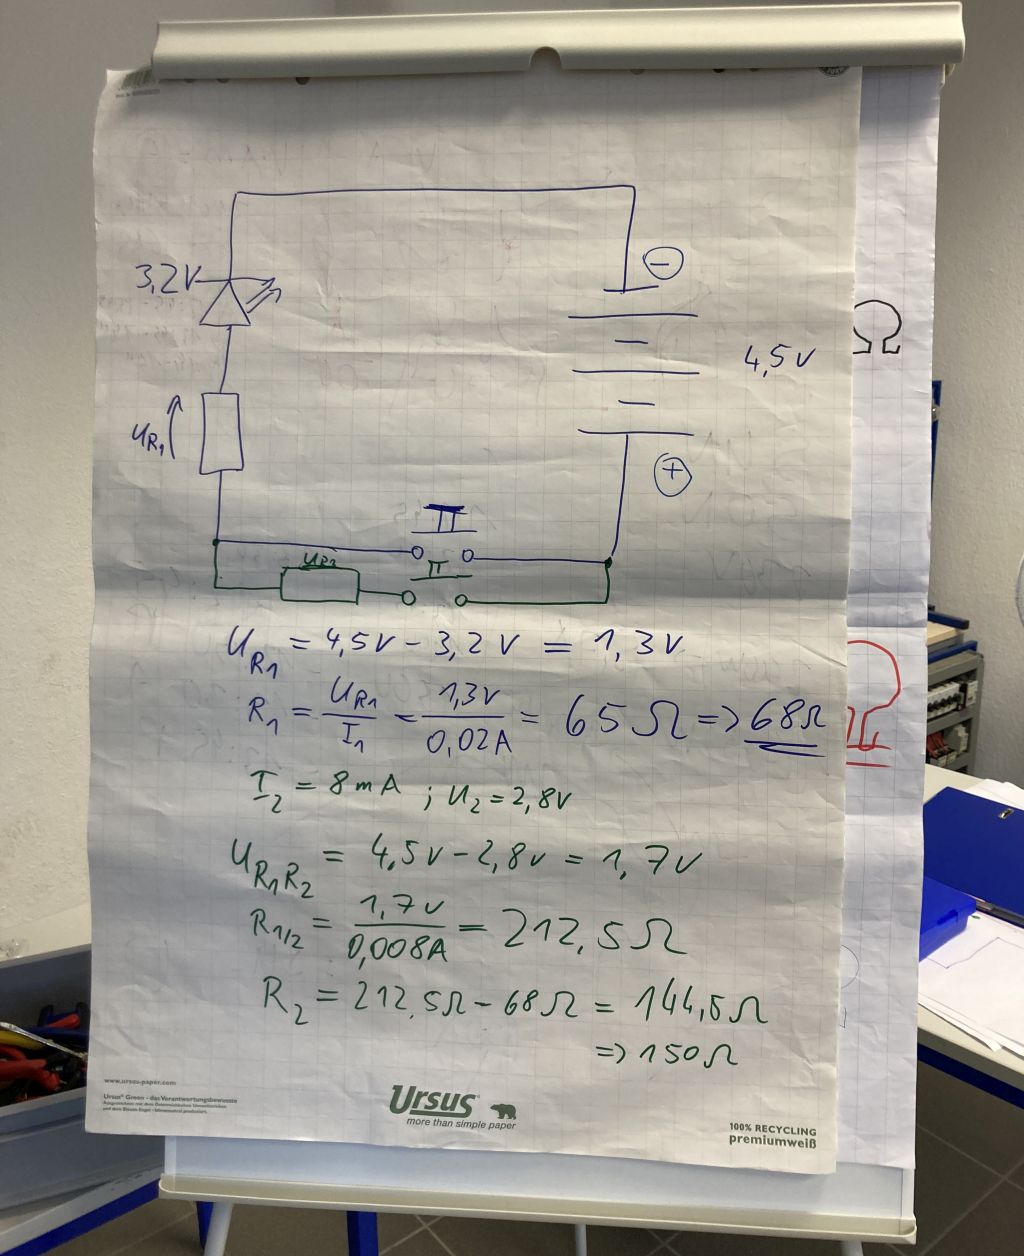 3,2V
⊖
4,5V
Ω
U_R1
⊕
U_R2
U_R1 = 4,5V - 3,2V = 1,3V
R_1 = U_R1 / I_1 = 1,3V / 0,02A = 65Ω => 68Ω
I_2 = 8mA ; U_2 = 2,8V
U_R1R2 = 4,5V - 2,8V = 1,7V
R_1/2 = 1,7V / 0,008A = 212,5Ω
R_2 = 212,5Ω - 68Ω = 144,5Ω
=> 150Ω
Ω
www.ursus-paper.com
Ursus® Green - das Verantwortungsbewusste
URSUS
more than simple paper
100% RECYCLING
premiumweiß